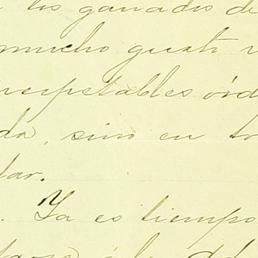 los ganados de
mucho gusto
respetables órd
da, sino en to
lar.
Ya es tiempo